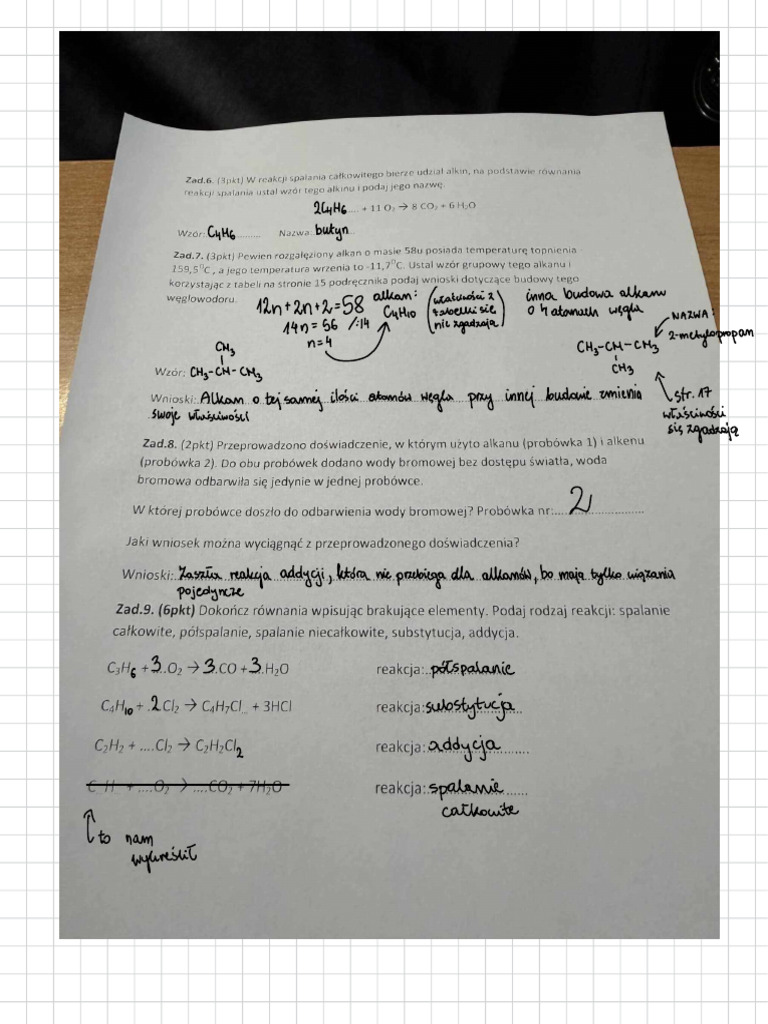 Zad.6. (3pkt) W reakcji spalania całkowitego bierze udział alkin, na podstawie równania
reakcji spalania ustal wzór tego alkinu i podaj jego nazwę.
2C₄H₆.... + 11 O₂ → 8 CO₂ + 6 H₂O
Wzór: C₄H₆......... Nazwa: butyn...
Zad.7. (3pkt) Pewien rozgałęziony alkan o masie 58u posiada temperaturę topnienia
159,5⁰C , a jego temperatura wrzenia to -11,7⁰C. Ustal wzór grupowy tego alkanu i
korzystając z tabeli na stronie 15 podręcznika podaj wnioski dotyczące budowy tego
węglowodoru.
12n+2n+2=58
14n = 56 /:14
n=4
alkan:
C₄H₁₀
(właściwości z
tabelki się
nie zgadzają)
inna budowa alkanu
o 4 atomach węgla
NAZWA:
2-metylopropan
CH₃-CH-CH₃
CH₃
str. 17
właściwości
się zgadzają
CH₃
Wzór: CH₃-CH-CH₃
Wnioski: Alkan o tej samej ilości atomów węgla przy innej budowie zmienia
swoje właściwości
Zad.8. (2pkt) Przeprowadzono doświadczenie, w którym użyto alkanu (probówka 1) i alkenu
(probówka 2). Do obu probówek dodano wody bromowej bez dostępu światła, woda
bromowa odbarwiła się jedynie w jednej probówce.
W której probówce doszło do odbarwienia wody bromowej? Probówka nr:.... 2 ..................
Jaki wniosek można wyciągnąć z przeprowadzonego doświadczenia?
Wnioski: Zaszła reakcja addycji, która nie przebiega dla alkanów, bo mają tylko wiązania
pojedyncze
Zad.9. (6pkt) Dokończ równania wpisując brakujące elementy. Podaj rodzaj reakcji: spalanie
całkowite, półspalanie, spalanie niecałkowite, substytucja, addycja.
C₃H₆ + 3..O₂ → 3.CO + 3.H₂O reakcja:..półspalanie
C₄H₁₀ + .2Cl₂ → C₄H₇Cl... + 3HCl reakcja: substytucja..
C₂H₂ + ....Cl₂ → C₂H₂Cl₂ reakcja: addycja..........
C H + ....O₂ → ....CO₂ + 7H₂O reakcja: spalanie......
całkowite
to nam
wykreślił